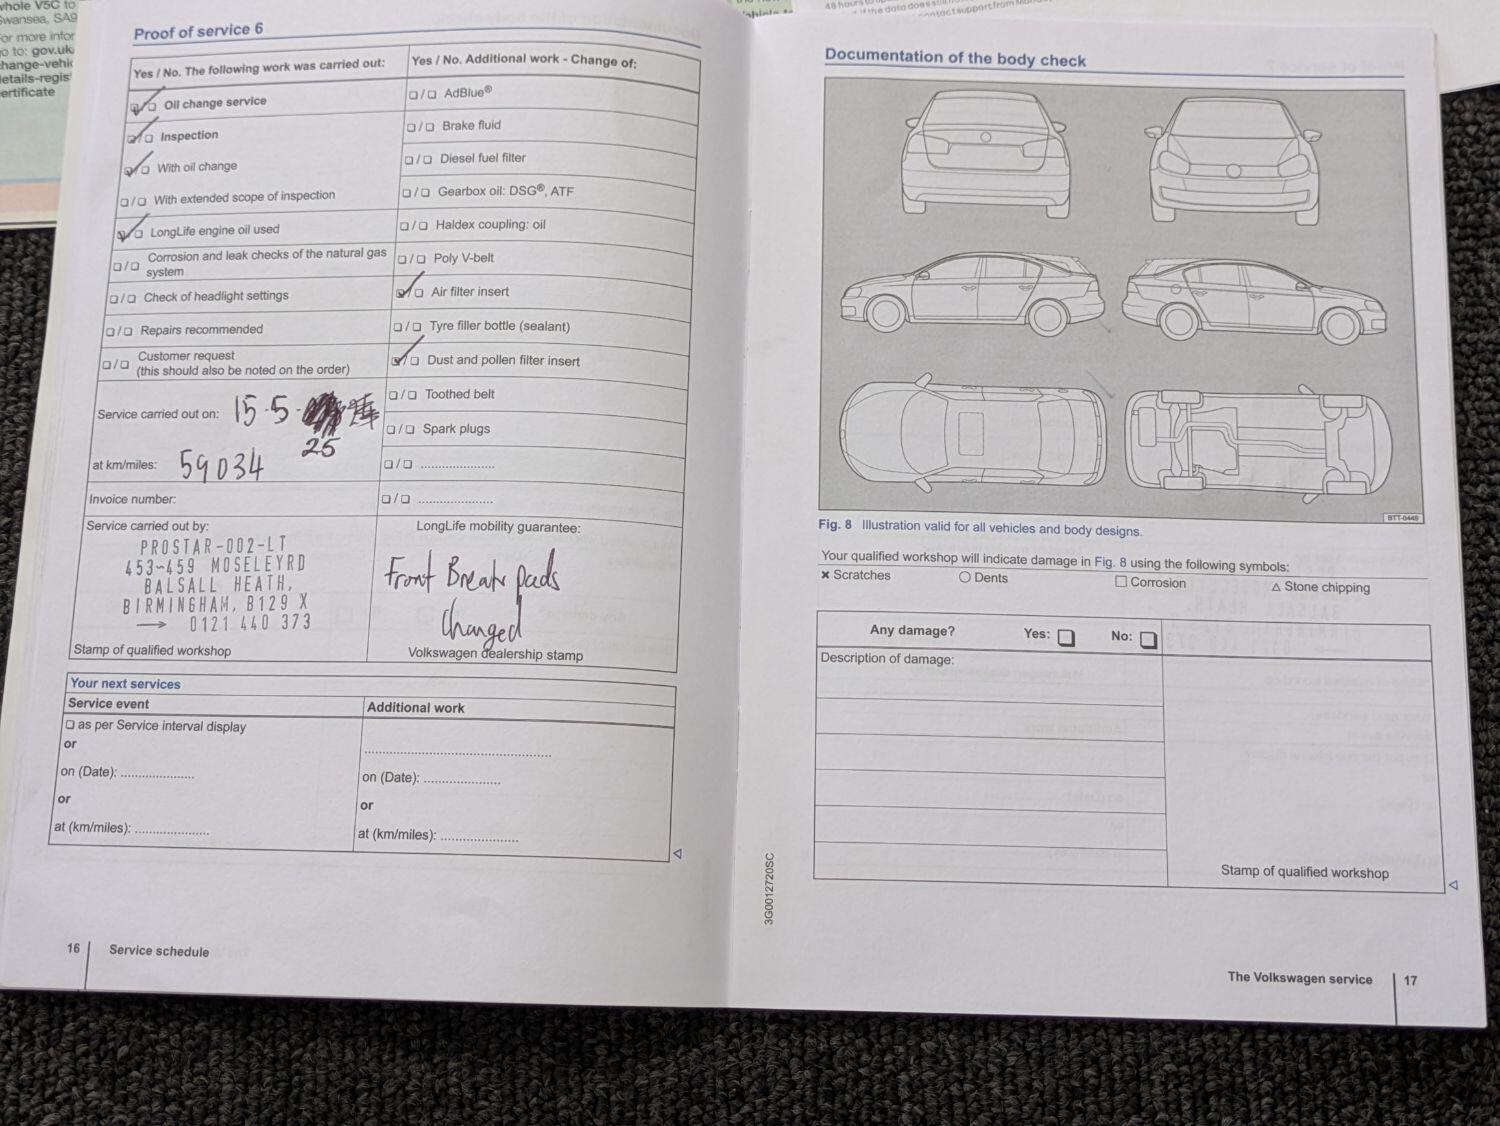 whole V5C to
Swansea, SA9
For more infor
go to: gov.uk
change-vehic
details-regis
certificate
Proof of service 6
Yes / No. The following work was carried out:
Oil change service
Inspection
With oil change
/ With extended scope of inspection
LongLife engine oil used
/ Corrosion and leak checks of the natural gas
system
/ Check of headlight settings
/ Repairs recommended
/ Customer request
(this should also be noted on the order)
Service carried out on: 15.5.
25
at km/miles: 59034
Invoice number:
Service carried out by:
PROSTAR-002-LT
453-459 MOSELEYRD
BALSALL HEATH,
BIRMINGHAM, B129 X
→ 0121 440 373
Stamp of qualified workshop
Yes / No. Additional work - Change of:
/ AdBlue®
/ Brake fluid
/ Diesel fuel filter
/ Gearbox oil: DSG®, ATF
/ Haldex coupling: oil
/ Poly V-belt
/ Air filter insert
/ Tyre filler bottle (sealant)
/ Dust and pollen filter insert
/ Toothed belt
/ Spark plugs
/ ......................
/ ......................
LongLife mobility guarantee:
Front Break pads
Changed
Volkswagen dealership stamp
Your next services
Service event
as per Service interval display
or
on (Date): ......................
or
at (km/miles): ......................
Additional work
......................................................
on (Date): ......................
or
at (km/miles): ......................
16 Service schedule
Documentation of the body check
BTT-0449
Fig. 8 Illustration valid for all vehicles and body designs.
Your qualified workshop will indicate damage in Fig. 8 using the following symbols:
× Scratches ○ Dents □ Corrosion △ Stone chipping
Any damage? Yes: No:
Description of damage:
Stamp of qualified workshop
3G0012720SC
The Volkswagen service 17